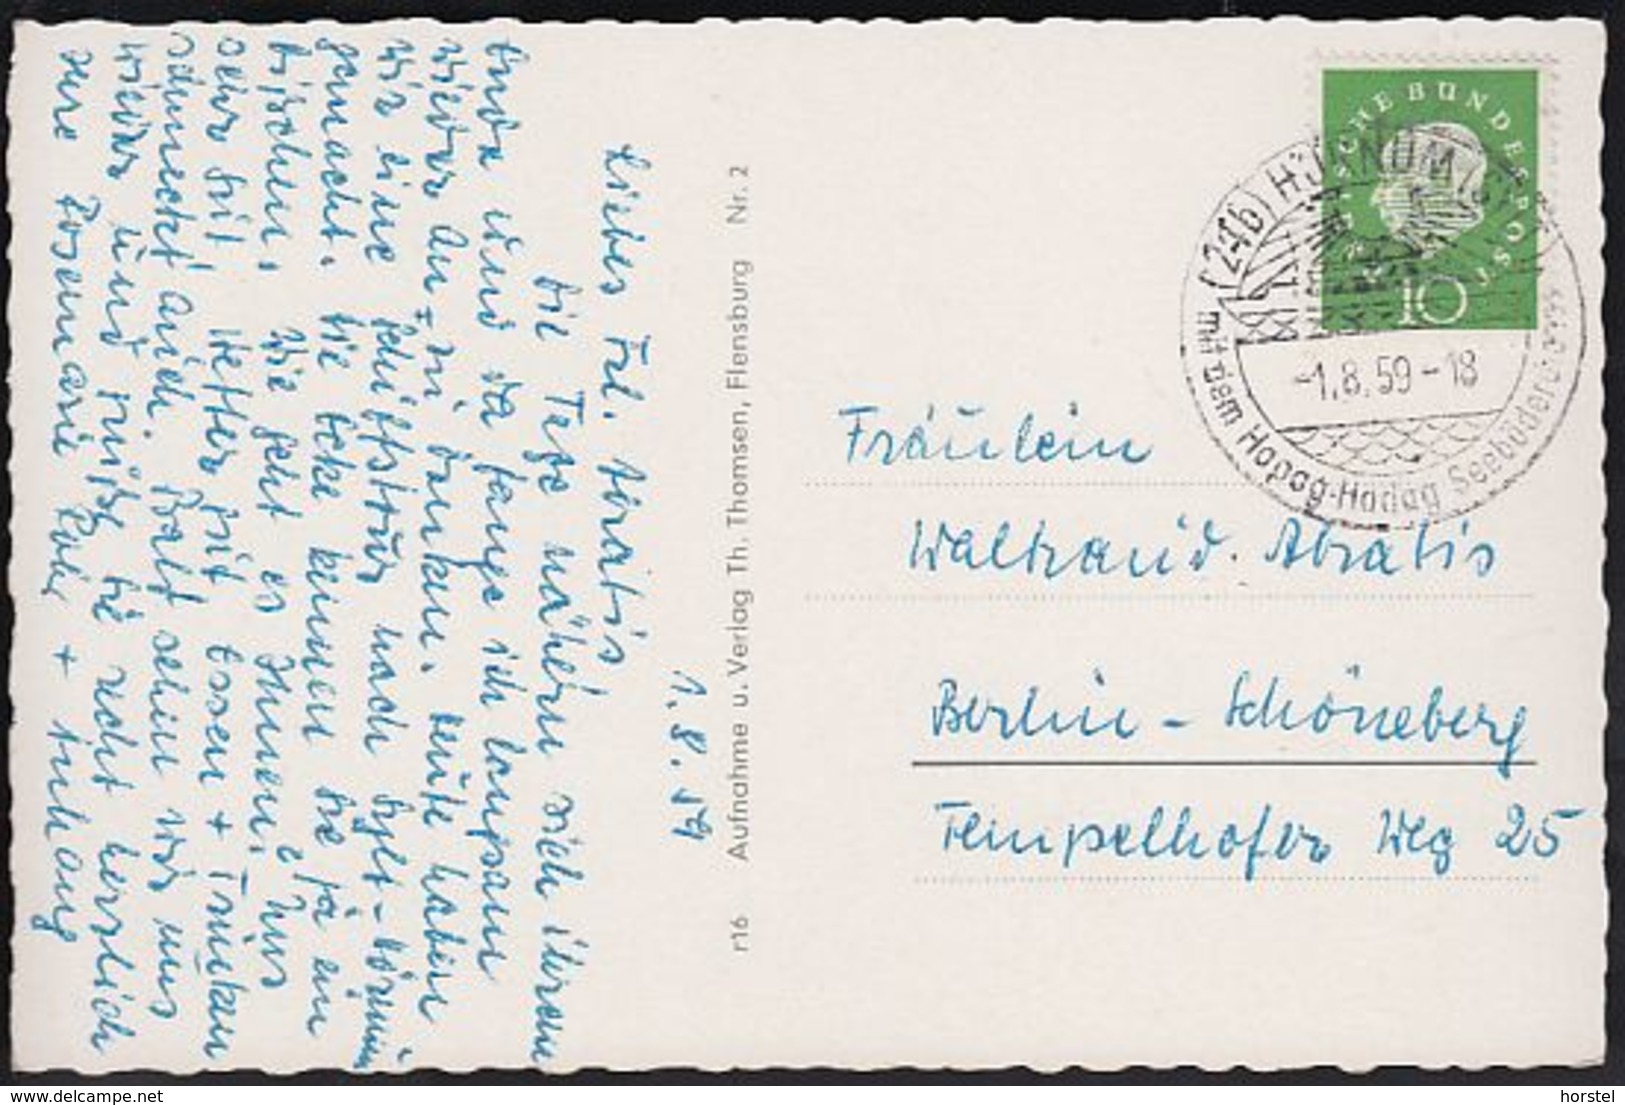 1. 8. 59
Liebes Frl. Abratis
Die Tage nähern sich ihrem
Ende und da fange ich langsam
wieder an zu denken. Heute haben
wir eine Schiffstour nach Sylt-Hörnum
gemacht. Sie kennen sie ja ein
bißchen. Wie geht es Ihnen? Uns
sehr gut. Wetter mit Essen + Trinken
schmeckt auch. Bald sehen wir uns
wieder und grüße Sie recht herzlich
Ihre Rosemarie + Anhang
r16 Aufnahme u. Verlag Th. Thomsen, Flensburg Nr. 2
DEUTSCHE BUNDESPOST
10
(24b) HÖRNUM (SYLT)
-1.8.59-18
mit dem Hapag-Hadag Seebäderdienst
Fräulein
Waltraud Abratis
Berlin - Schöneberg
Tempelhofer Weg 25
delcampe.net
horstel